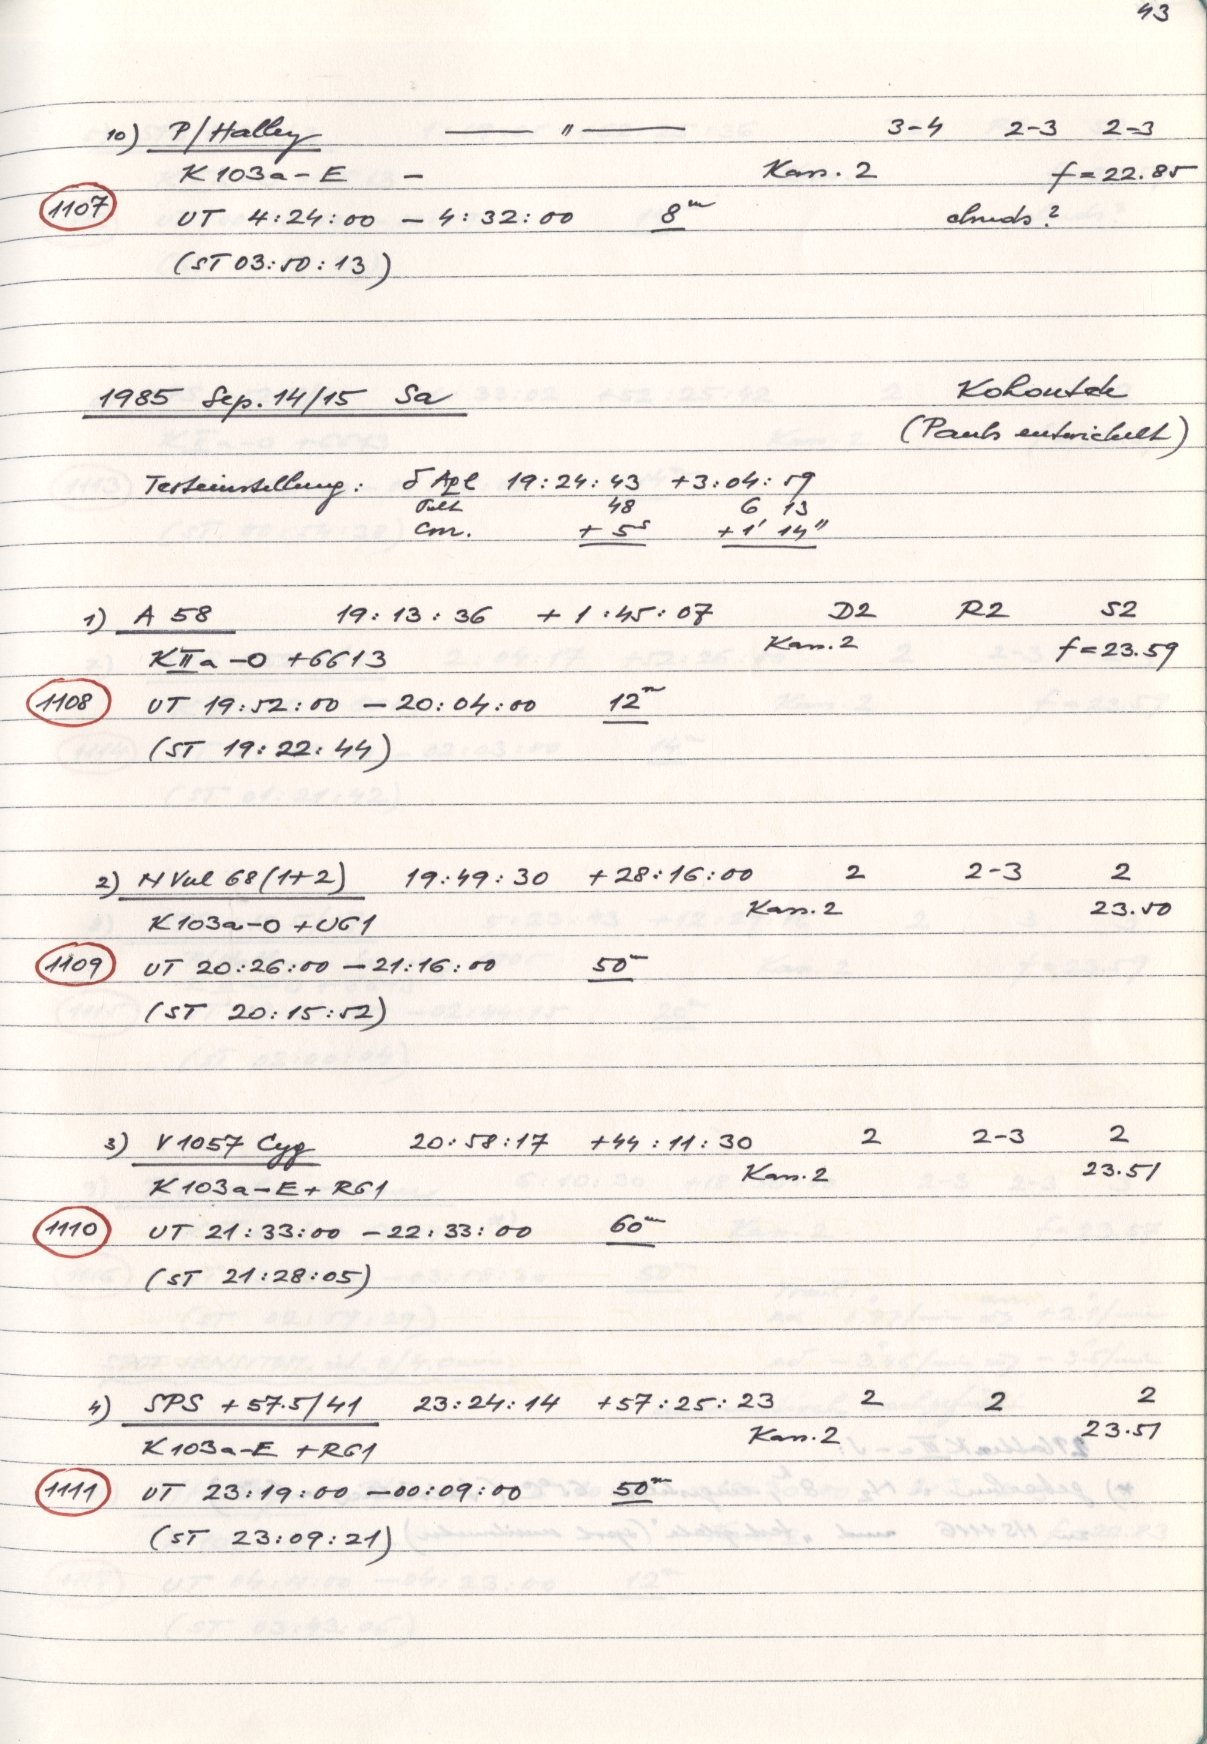 43
10) P/Halley —— " —— 3-4 2-3 2-3
K 103a-E - Kass. 2 f=22.85
1107 UT 4:24:00 - 4:32:00 8m clouds?
(ST 03:50:13)
1985 Sep. 14/15 Sa Kohoutek
(Pauls entwickelt)
Testeinstellung: δ Aql 19:24:43 +3:04:59
48 6 13
Corr. +5s +1' 14"
1) A 58 19:13:36 +1:45:07 D2 R2 S2
KIIa-O +GG13 Kass. 2 f=23.59
1108 UT 19:52:00 - 20:04:00 12m
(ST 19:22:44)
2) N Vul 68(1+2) 19:49:30 +28:16:00 2 2-3 2
K103a-O +UG1 Kass. 2 23.50
1109 UT 20:26:00 - 21:16:00 50m
(ST 20:15:52)
3) V1057 Cyg 20:58:17 +44:11:30 2 2-3 2
K103a-E + RG1 Kass. 2 23.51
1110 UT 21:33:00 - 22:33:00 60m
(ST 21:28:05)
4) SPS +57.5/41 23:24:14 +57:25:23 2 2 2
K103a-E +RG1 Kass. 2 23.51
1111 UT 23:19:00 - 00:09:00 50m
(ST 23:09:21)